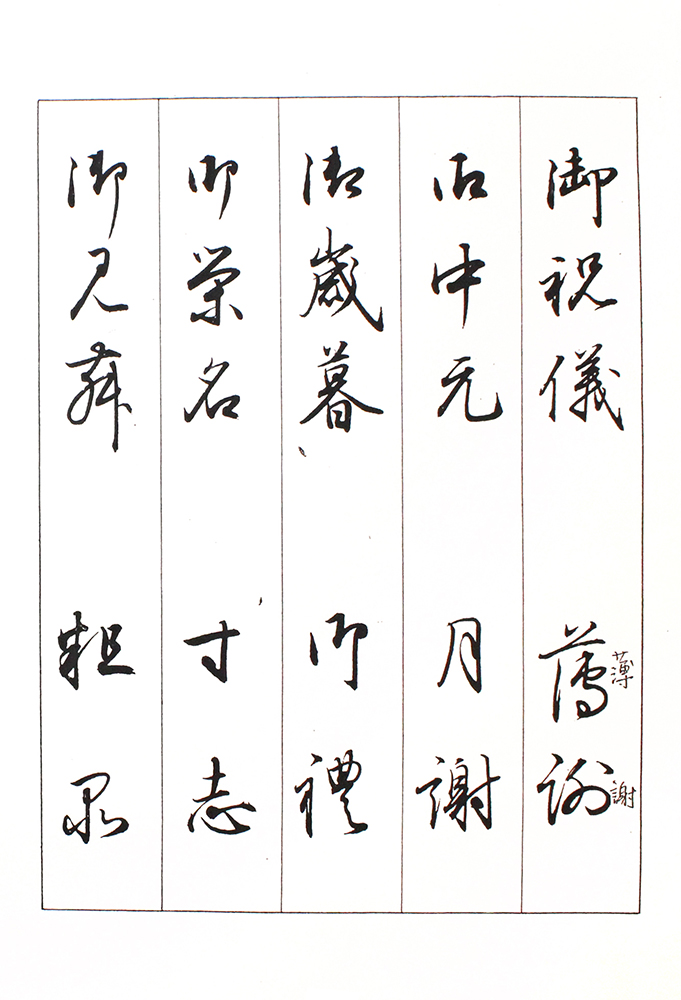 御祝儀 薄謝
薄
謝
御中元 月謝
御歳暮 御禮
御栄名 寸志
御見舞 粗品